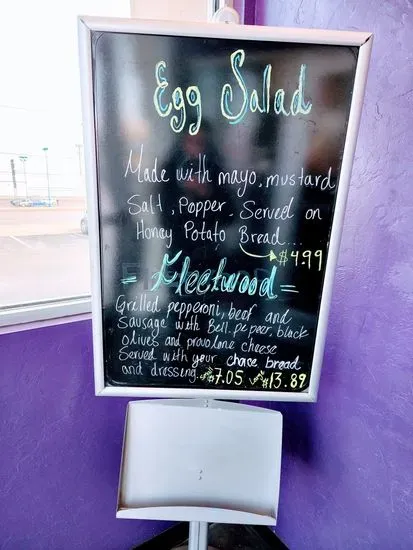 Egg Salad
Made with mayo, mustard
Salt, Popper. Served on
Honey Potato Bread...
$4.99
= Fleetwood =
Grilled pepperoni, beef and
Sausage with Bell. pepper, black
olives and provolone cheese
Served with your chose bread
and dressing. $7.05 $13.89